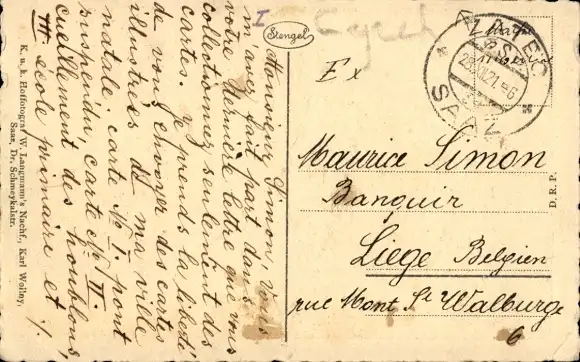 Monsieur Simon, Vous
m'avez fait part dans
votre dernière lettre que vous
collectionnez seulement des
cartes. Je prends la liberté
de vous envoyer des cartes
illustrées de ma ville
natale: carte № I. pont
suspendu carte № II.
cueillement des houblons,
III école primaire et
K. u. k. Hoffotogr. W. Langmann's Nachf., Karl Wollny,
Saaz, Dr. Schmeykalstr.
I
Stengel
Ex
ŽATEC
28.XI.21.-6
SAAZ
D. R. P.
Maurice Simon
Banquir
Liege Belgien
rue Mont St Walburge
6